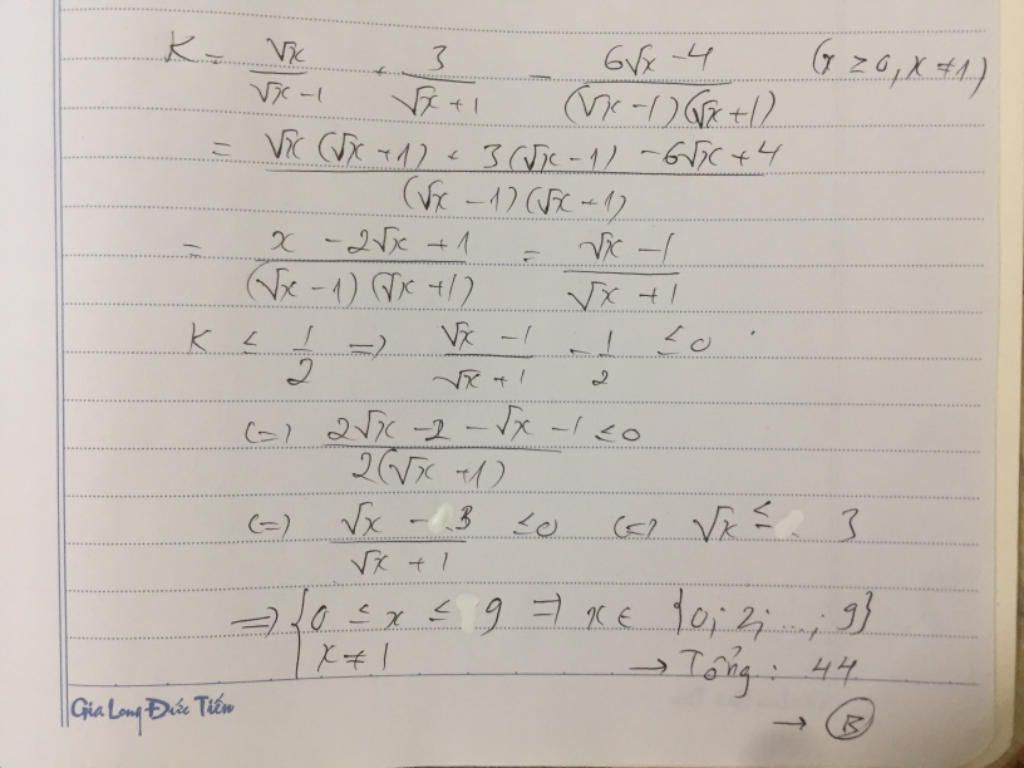 K = √x/(√x - 1) + 3/(√x + 1) - (6√x - 4)/((√x - 1)(√x + 1)) (x ≥ 0, x ≠ 1)
= (√x(√x + 1) + 3(√x - 1) - 6√x + 4)/((√x - 1)(√x + 1))
= (x - 2√x + 1)/((√x - 1)(√x + 1)) = (√x - 1)/(√x + 1)
K ≤ 1/2 => (√x - 1)/(√x + 1) - 1/2 ≤ 0
(=) (2√x - 2 - √x - 1)/(2(√x + 1)) ≤ 0
(=) (√x - 3)/(√x + 1) ≤ 0 (=) √x ≤ 3
=> { 0 ≤ x ≤ 9 => x ∈ {0; 2; ...; 9}
x ≠ 1 → Tổng: 44
Gia Long Đức Tiến
→ B